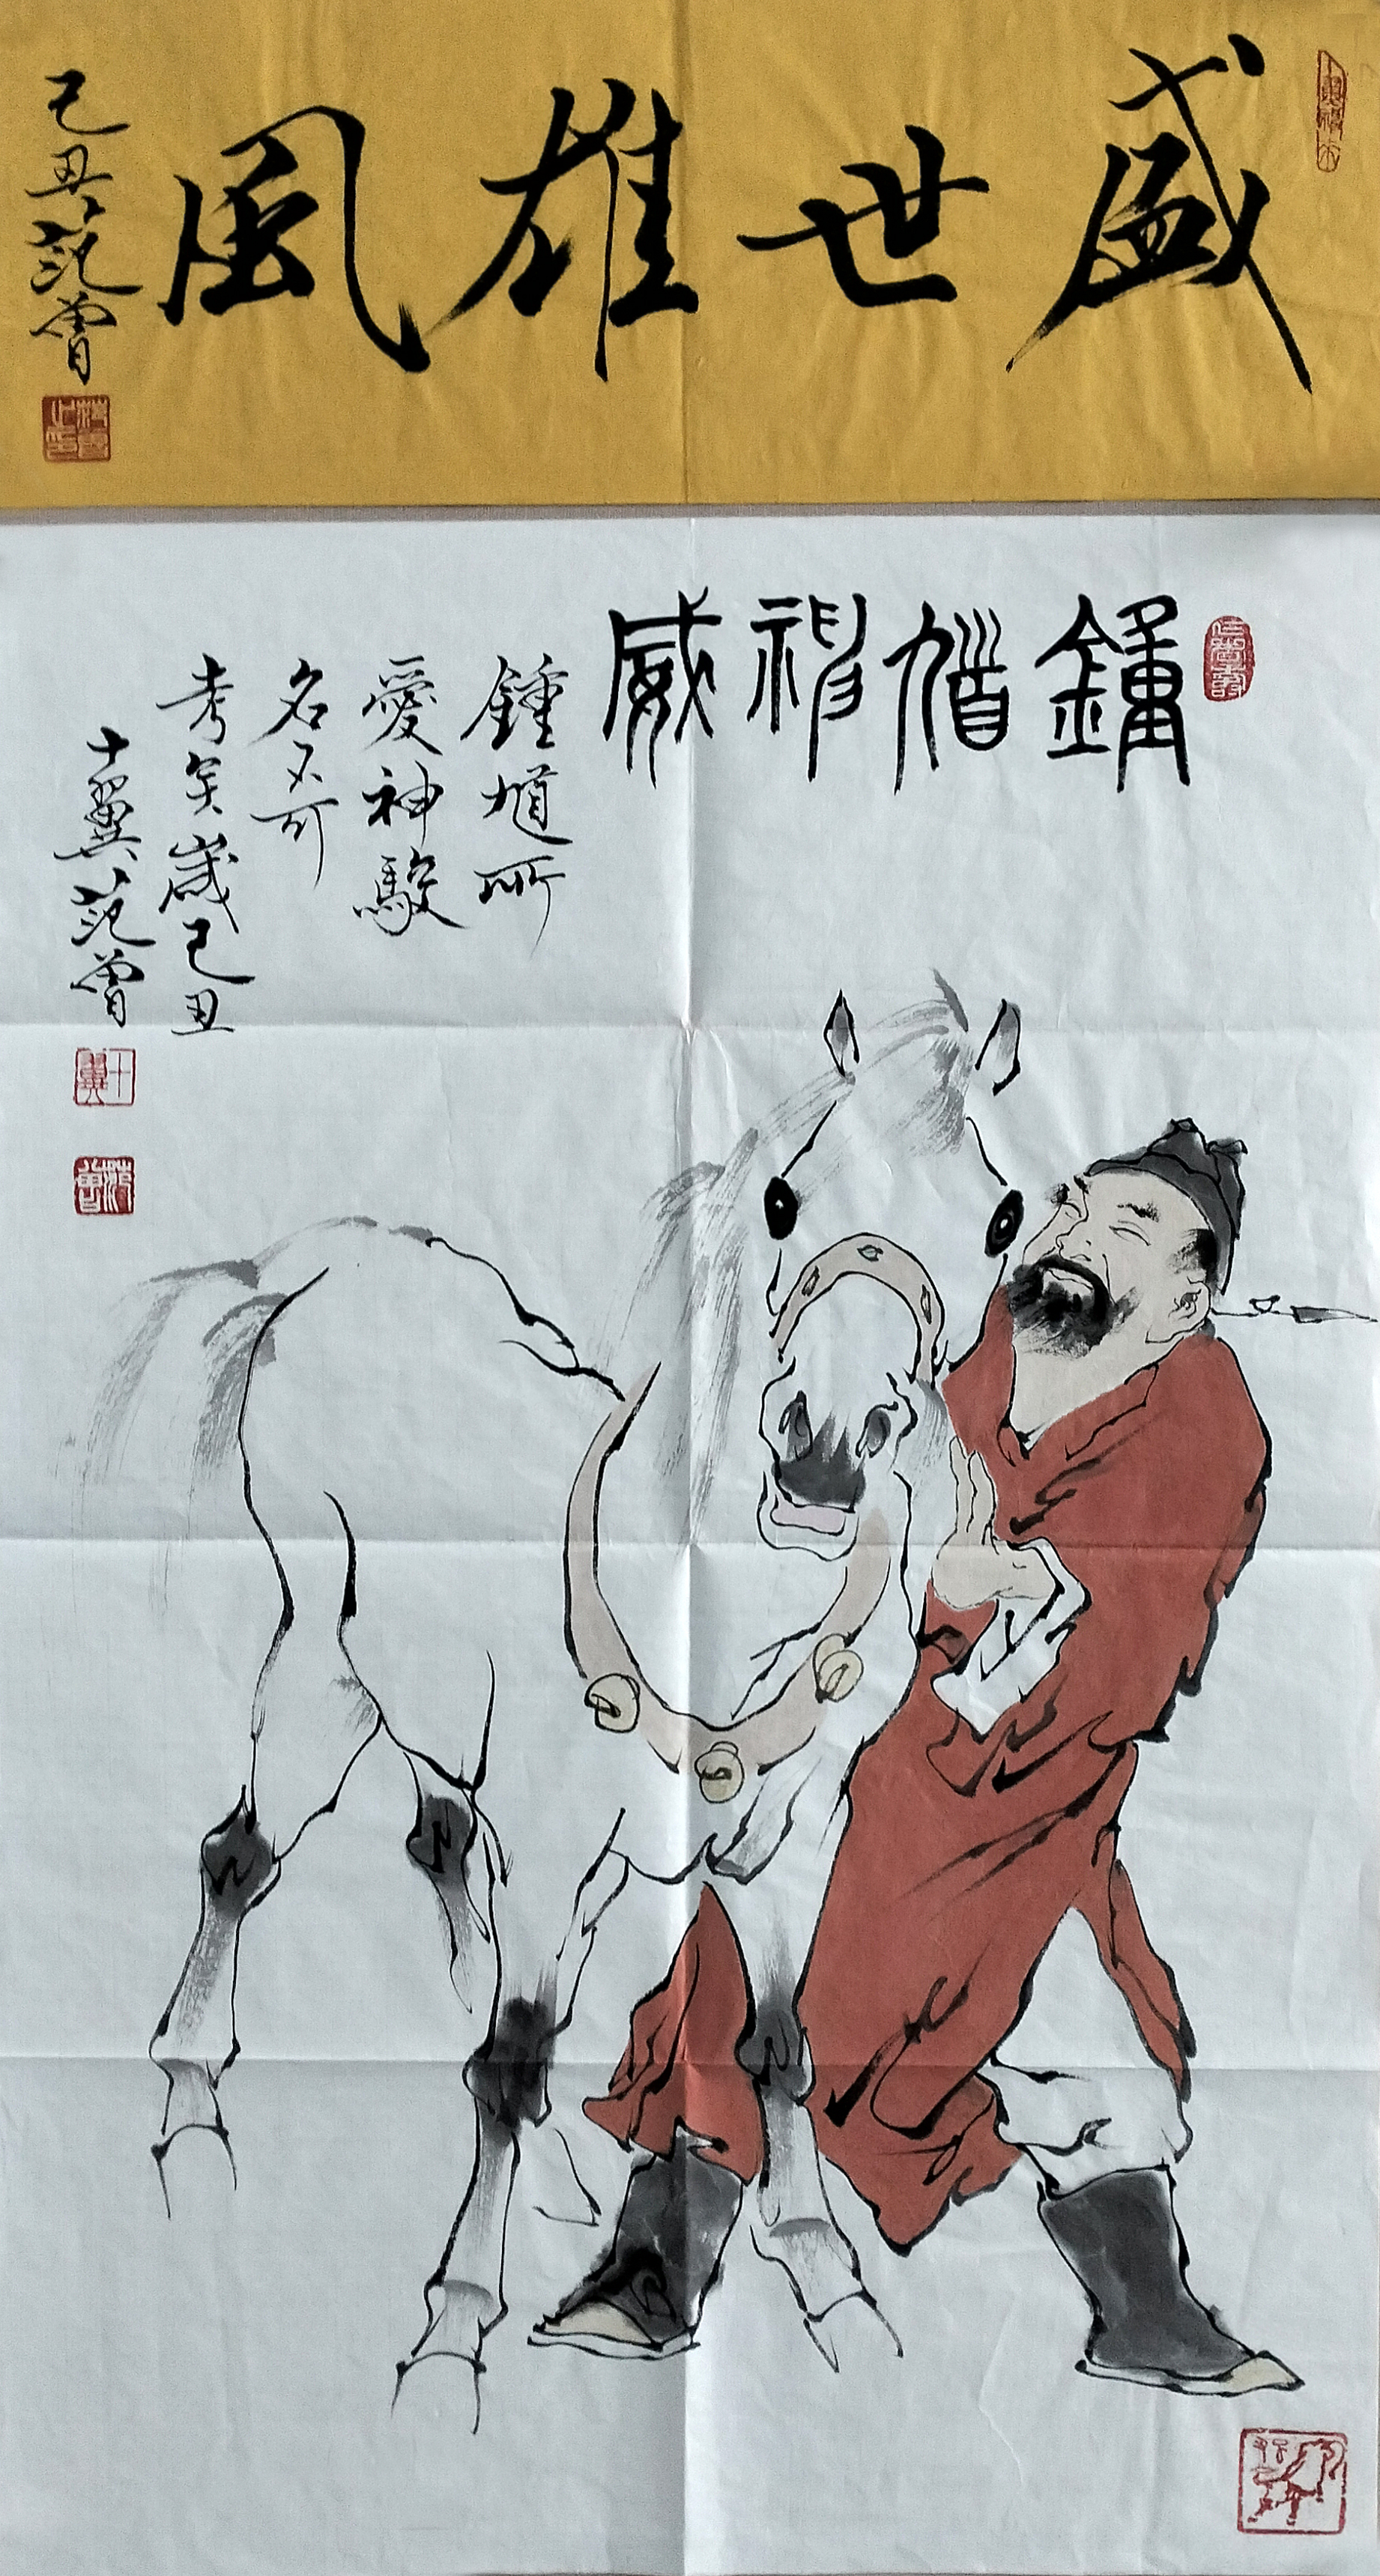 盛世雄風
己丑范曾
鍾馗神威
鍾馗所
愛神駿
名不可
考矣歲己丑
十翼范曾
十翼
范曾